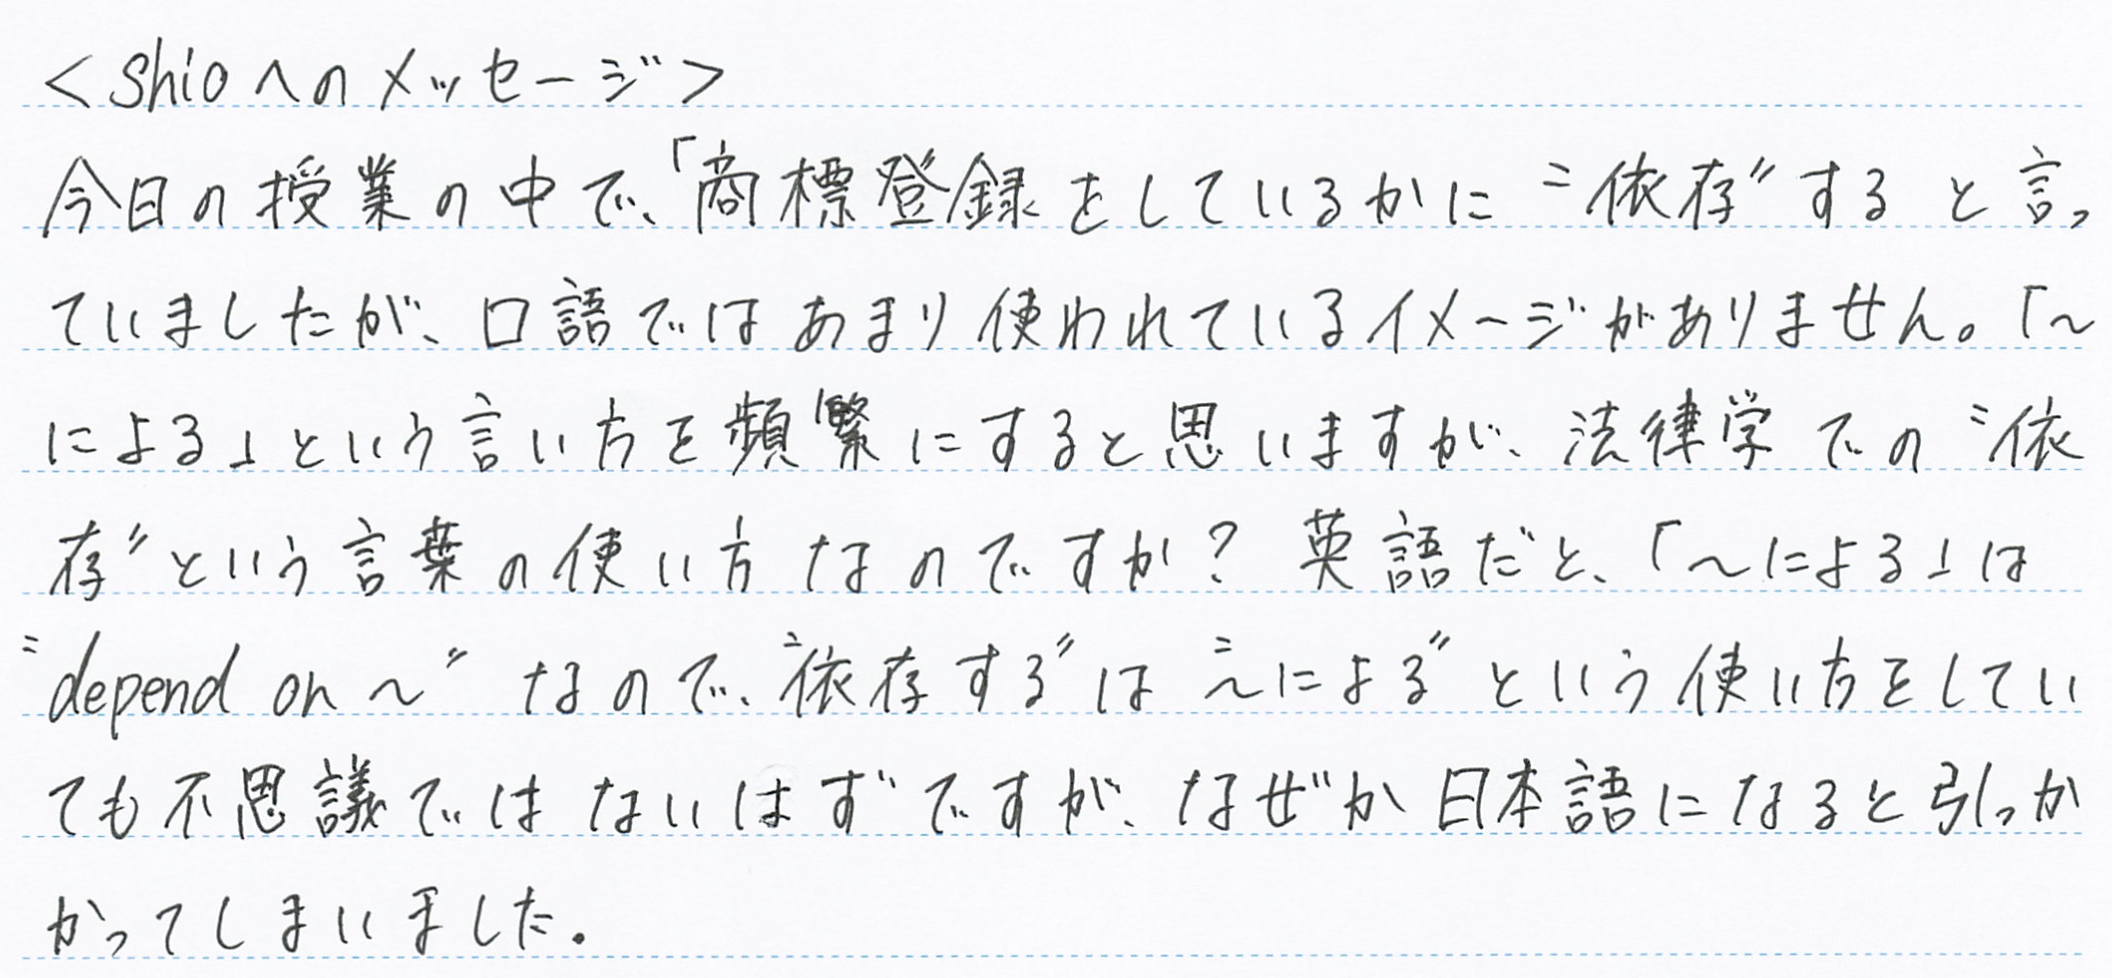 <Shioへのメッセージ>
今日の授業の中で、「商標登録をしているかに〝依存〞すると言っ
ていましたが、口語ではあまり使われているイメージがありません。「〜
による」という言い方を頻繁にすると思いますが、法律学での〝依
存〞という言葉の使い方なのですか? 英語だと、「〜による」は
〝depend on 〜〞なので、〝依存する〞は〝〜による〞という使い方をしてい
ても不思議ではないはずですが、なぜか日本語になると引っか
かってしまいました。